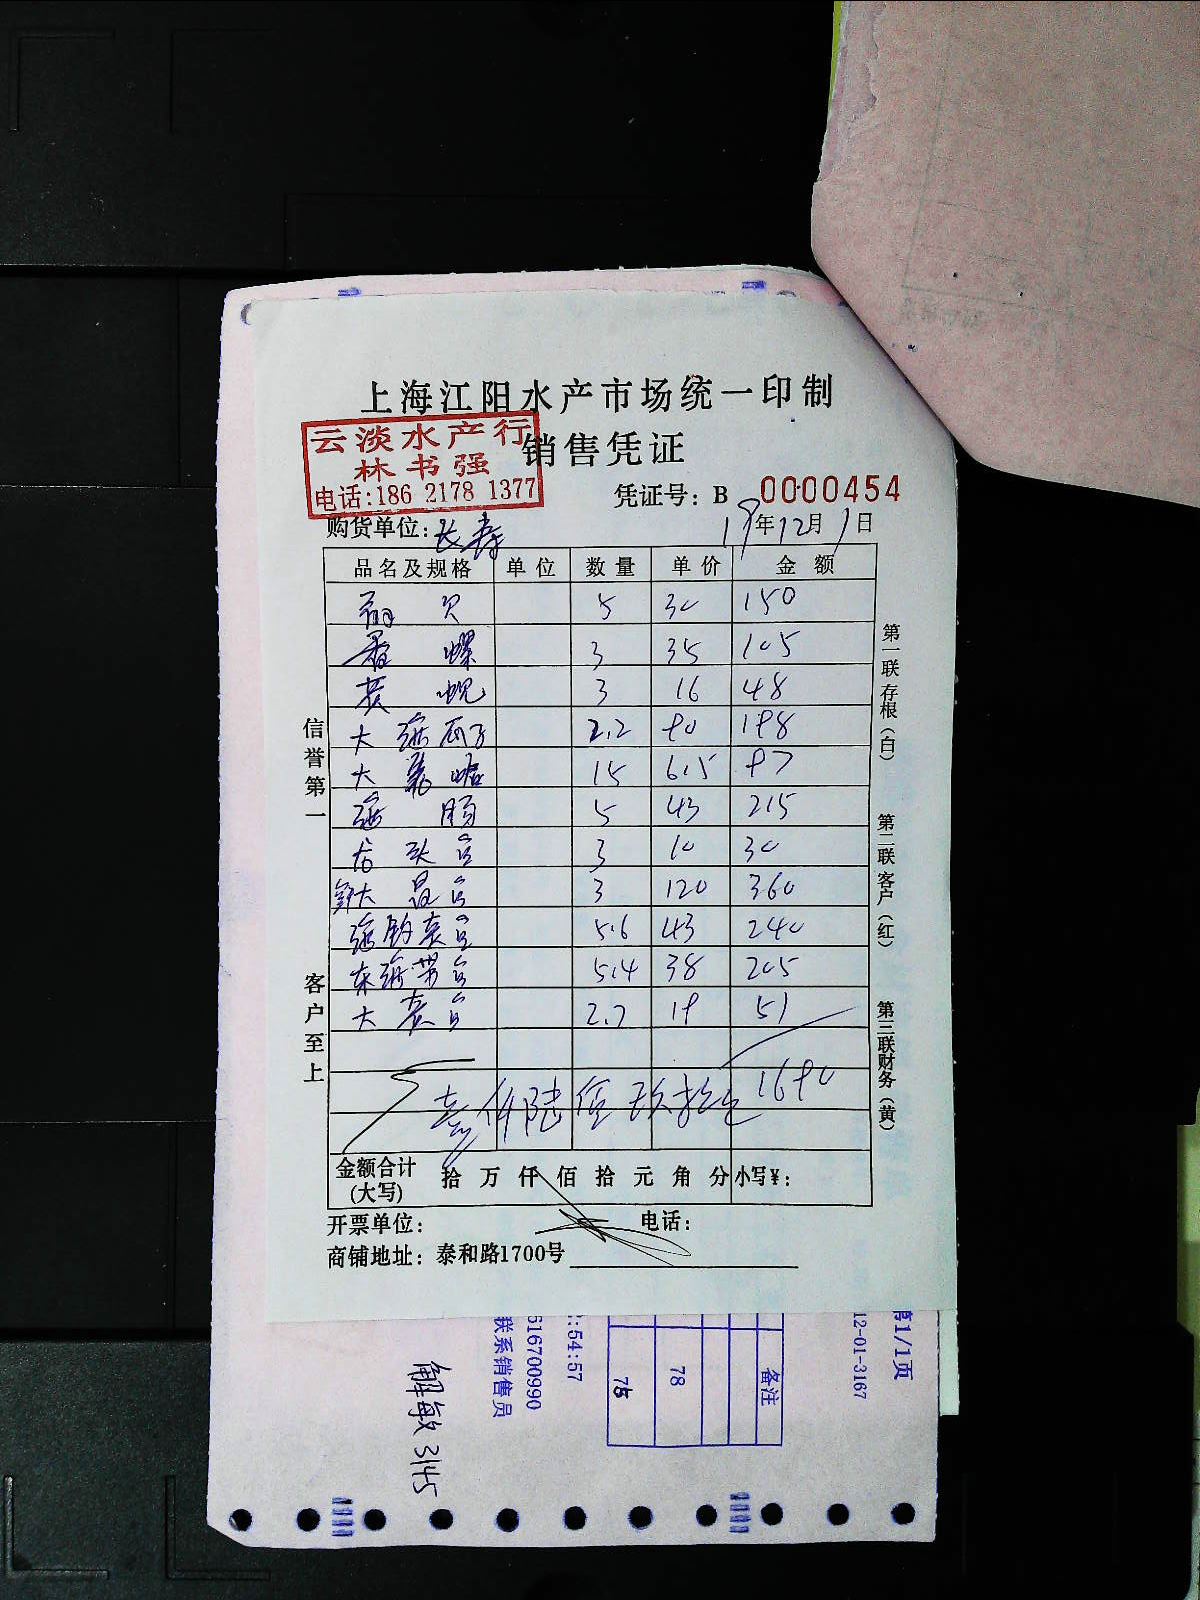 上海江阳水产市场统一印制
云淡水产行
林书强
电话:186 2178 1377
销售凭证
凭证号: B 0000454
购货单位: 长寿 19年12月1日
品名及规格 单位 数量 单价 金额
5 30 150
香螺 3 35 105
3 16 48
大 2.2 90 198
大 15 6.5 97
5 43 215
3 10 30
大 3 120 360
5.6 43 240
东海带鱼 5.4 38 205
大 2.7 19 51
壹仟陆佰玖拾 1690
金额合计(大写) 拾 万 仟 佰 拾 元 角 分 小写¥:
开票单位: 电话:
商铺地址: 泰和路1700号
信誉第一
客户至上
第一联 存根(白)
第二联 客户(红)
第三联 财务(黄)
第1/1页
12-01-3167
备注
78
75
:54:57
616700990
联系销售员
解敏 3145